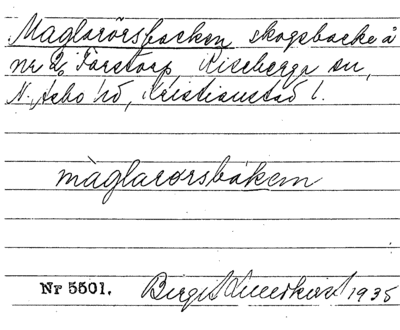 Maglarörsbacken skogsbacke å
nr 2, Färstorp Riseberga sn,
N. Åsbo hd, Kristianstad l.
màglarorsbákem
Nr 5501.
Birgit 1935